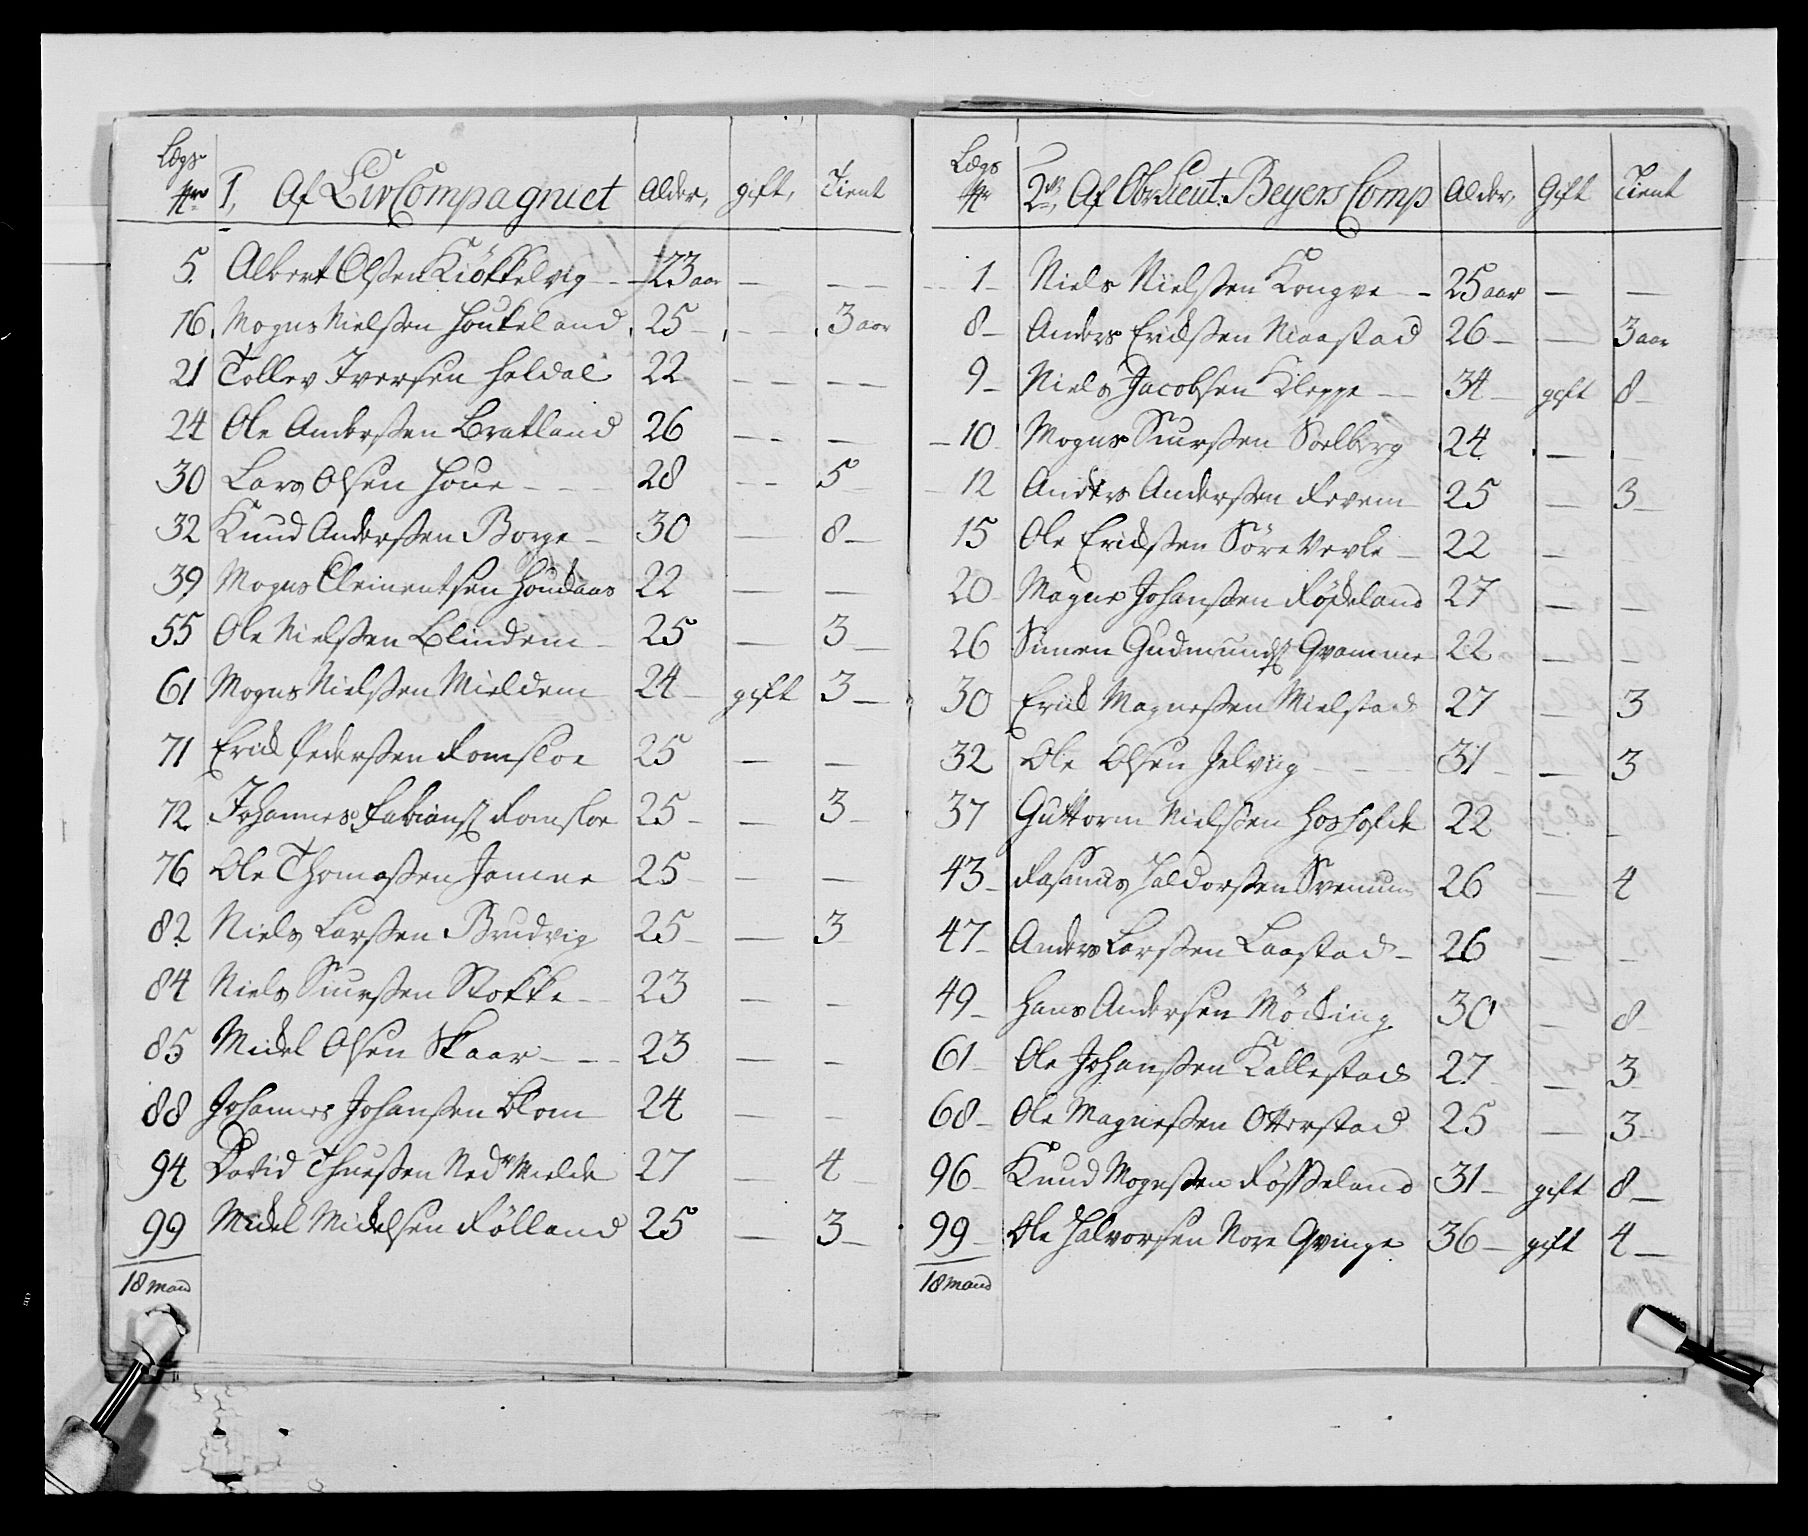 Lægs
No 1, Af Liv Compagniet Alder, gift, Tient
5. Albert Olssen Kiökkelvig 23 aar — —
16. Mogns Nielssen Houkeland 25 — 3 aar
21 Tollev Iversen Heldal 22 — —
24 Ole Anderssen Bratland 26 — —
30 Lars Olsen Houe 28 — 5
32 Knud Anderssen Borge 30 — 8
39 Mogns Clementsen Houdaas 22 — —
55 Ole Nielssen Blindem 25 — 3
61 Mogns Nielssen Mieldem 24 gift 3
71 Erick Pederssen Romsloe 25 — —
72 Johannes Fabians Romsloe 25 — 3
76 Ole Thomassen Jamne 25 — —
82 Niels Larssen Brudvig 25 — 3
84 Niels Siurssen Stokke 23 — —
85 Mickel Olsen Skaar 23 — —
88 Johannes Johanssen Blom 24 — —
94 David Thuessen Nedr Mielde 27 — 4
99 Mickel Mickelsen Rölland 25 — 3
18 mand
Lægs
No 2, Af Obr Lieut. Beyers Comp Alder, Gift Tient
1 Niels Nielssen Kongve 25 aar — —
8 Anders Erickssen Niaastad 26 — 3 aar
9 Niels Jacobsen Kleppe 34 gift 8
10 Mogns Siurssen Soelberg 24 — —
12 Anders Anderssen Revem 25 — 3
15 Ole Erickssen Söre Vevle 22 — —
20 Magne Johanssen Rödeland 27 — —
26 Simen Gudmunds Qvamme 22 — —
30 Erick Magnessen Mielstad 27 — 3
32 Ole Olsen Jelviig 31 — 3
37 Guttorm Nielssen 22 — —
43 Rasmus Haldorssen Svenum 26 — 4
47 Anders Larssen Laastad 26 — —
49 Hans Andersen Möcking 30 — 8
61 Ole Johanssen Kallestad 27 — 3
68 Ole Magnessen Otterstad 25 — 3
96 Knud Mognssen Rösseland 31 gift 8
99 Ole Halvorsen Nore Qvinge 36 gift 4
18 mand